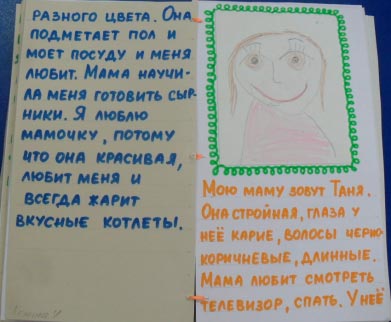 РАЗНОГО ЦВЕТА. ОНА
ПОДМЕТАЕТ ПОЛ И
МОЕТ ПОСУДУ И МЕНЯ
ЛЮБИТ. МАМА НАУЧИ-
ЛА МЕНЯ ГОТОВИТЬ СЫР-
НИКИ. Я ЛЮБЛЮ
МАМОЧКУ, ПОТОМУ
ЧТО ОНА КРАСИВАЯ,
ЛЮБИТ МЕНЯ И
ВСЕГДА ЖАРИТ
ВКУСНЫЕ КОТЛЕТЫ.
МОЮ МАМУ ЗОВУТ ТАНЯ.
ОНА СТРОЙНАЯ, ГЛАЗА У
НЕЁ КАРИЕ, ВОЛОСЫ ЧЕРНО-
КОРИЧНЕВЫЕ, ДЛИННЫЕ.
МАМА ЛЮБИТ СМОТРЕТЬ
ТЕЛЕВИЗОР, СПАТЬ. У НЕЁ